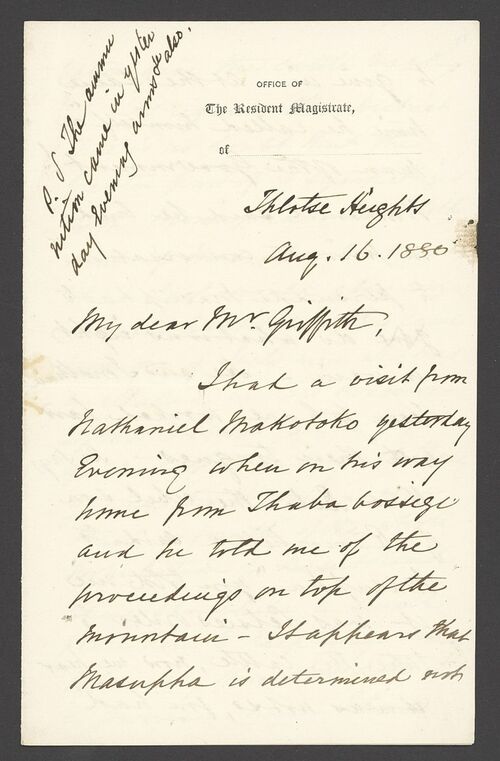 P.S The ammu
nition came in yester
day Evening arms do also.
OFFICE OF
The Resident Magistrate,
of
Thlotse Heights
Aug. 16. 1880
My dear Mr. Griffith,
I had a visit from
Nathaniel Makotoko yesterday
Evening when on his way
home from Thaba bossigo
and he told me of the
proceedings on top of the
mountain - It appears that
Masupha is determined not